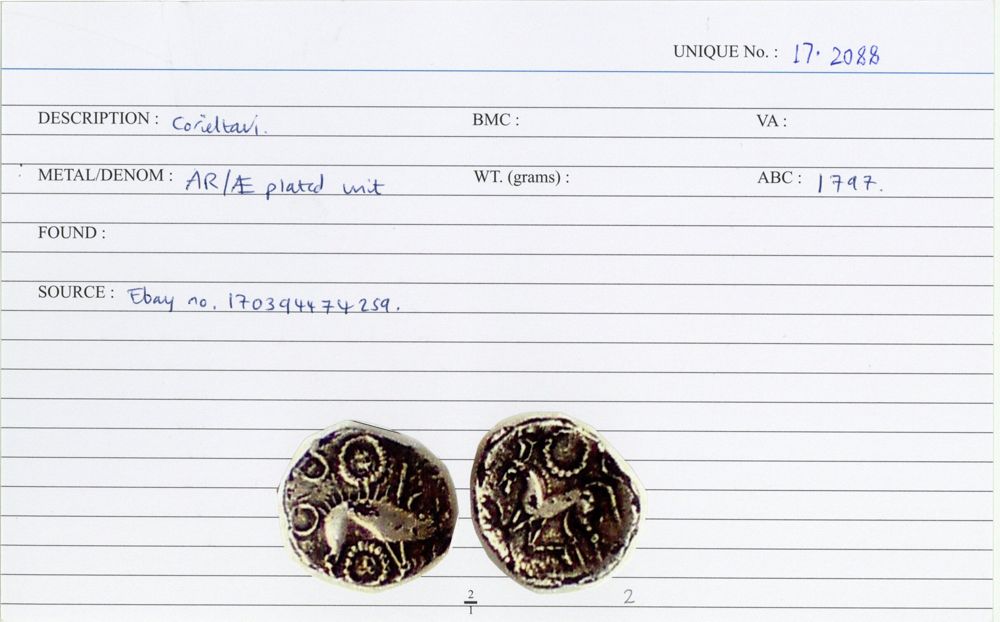 UNIQUE No. : 17. 2088
DESCRIPTION : Corieltavi. BMC : VA :
METAL/DENOM : AR/Æ plated unit WT. (grams) : ABC : 1797.
FOUND :
SOURCE : Ebay no. 170394474259.
2/1 2